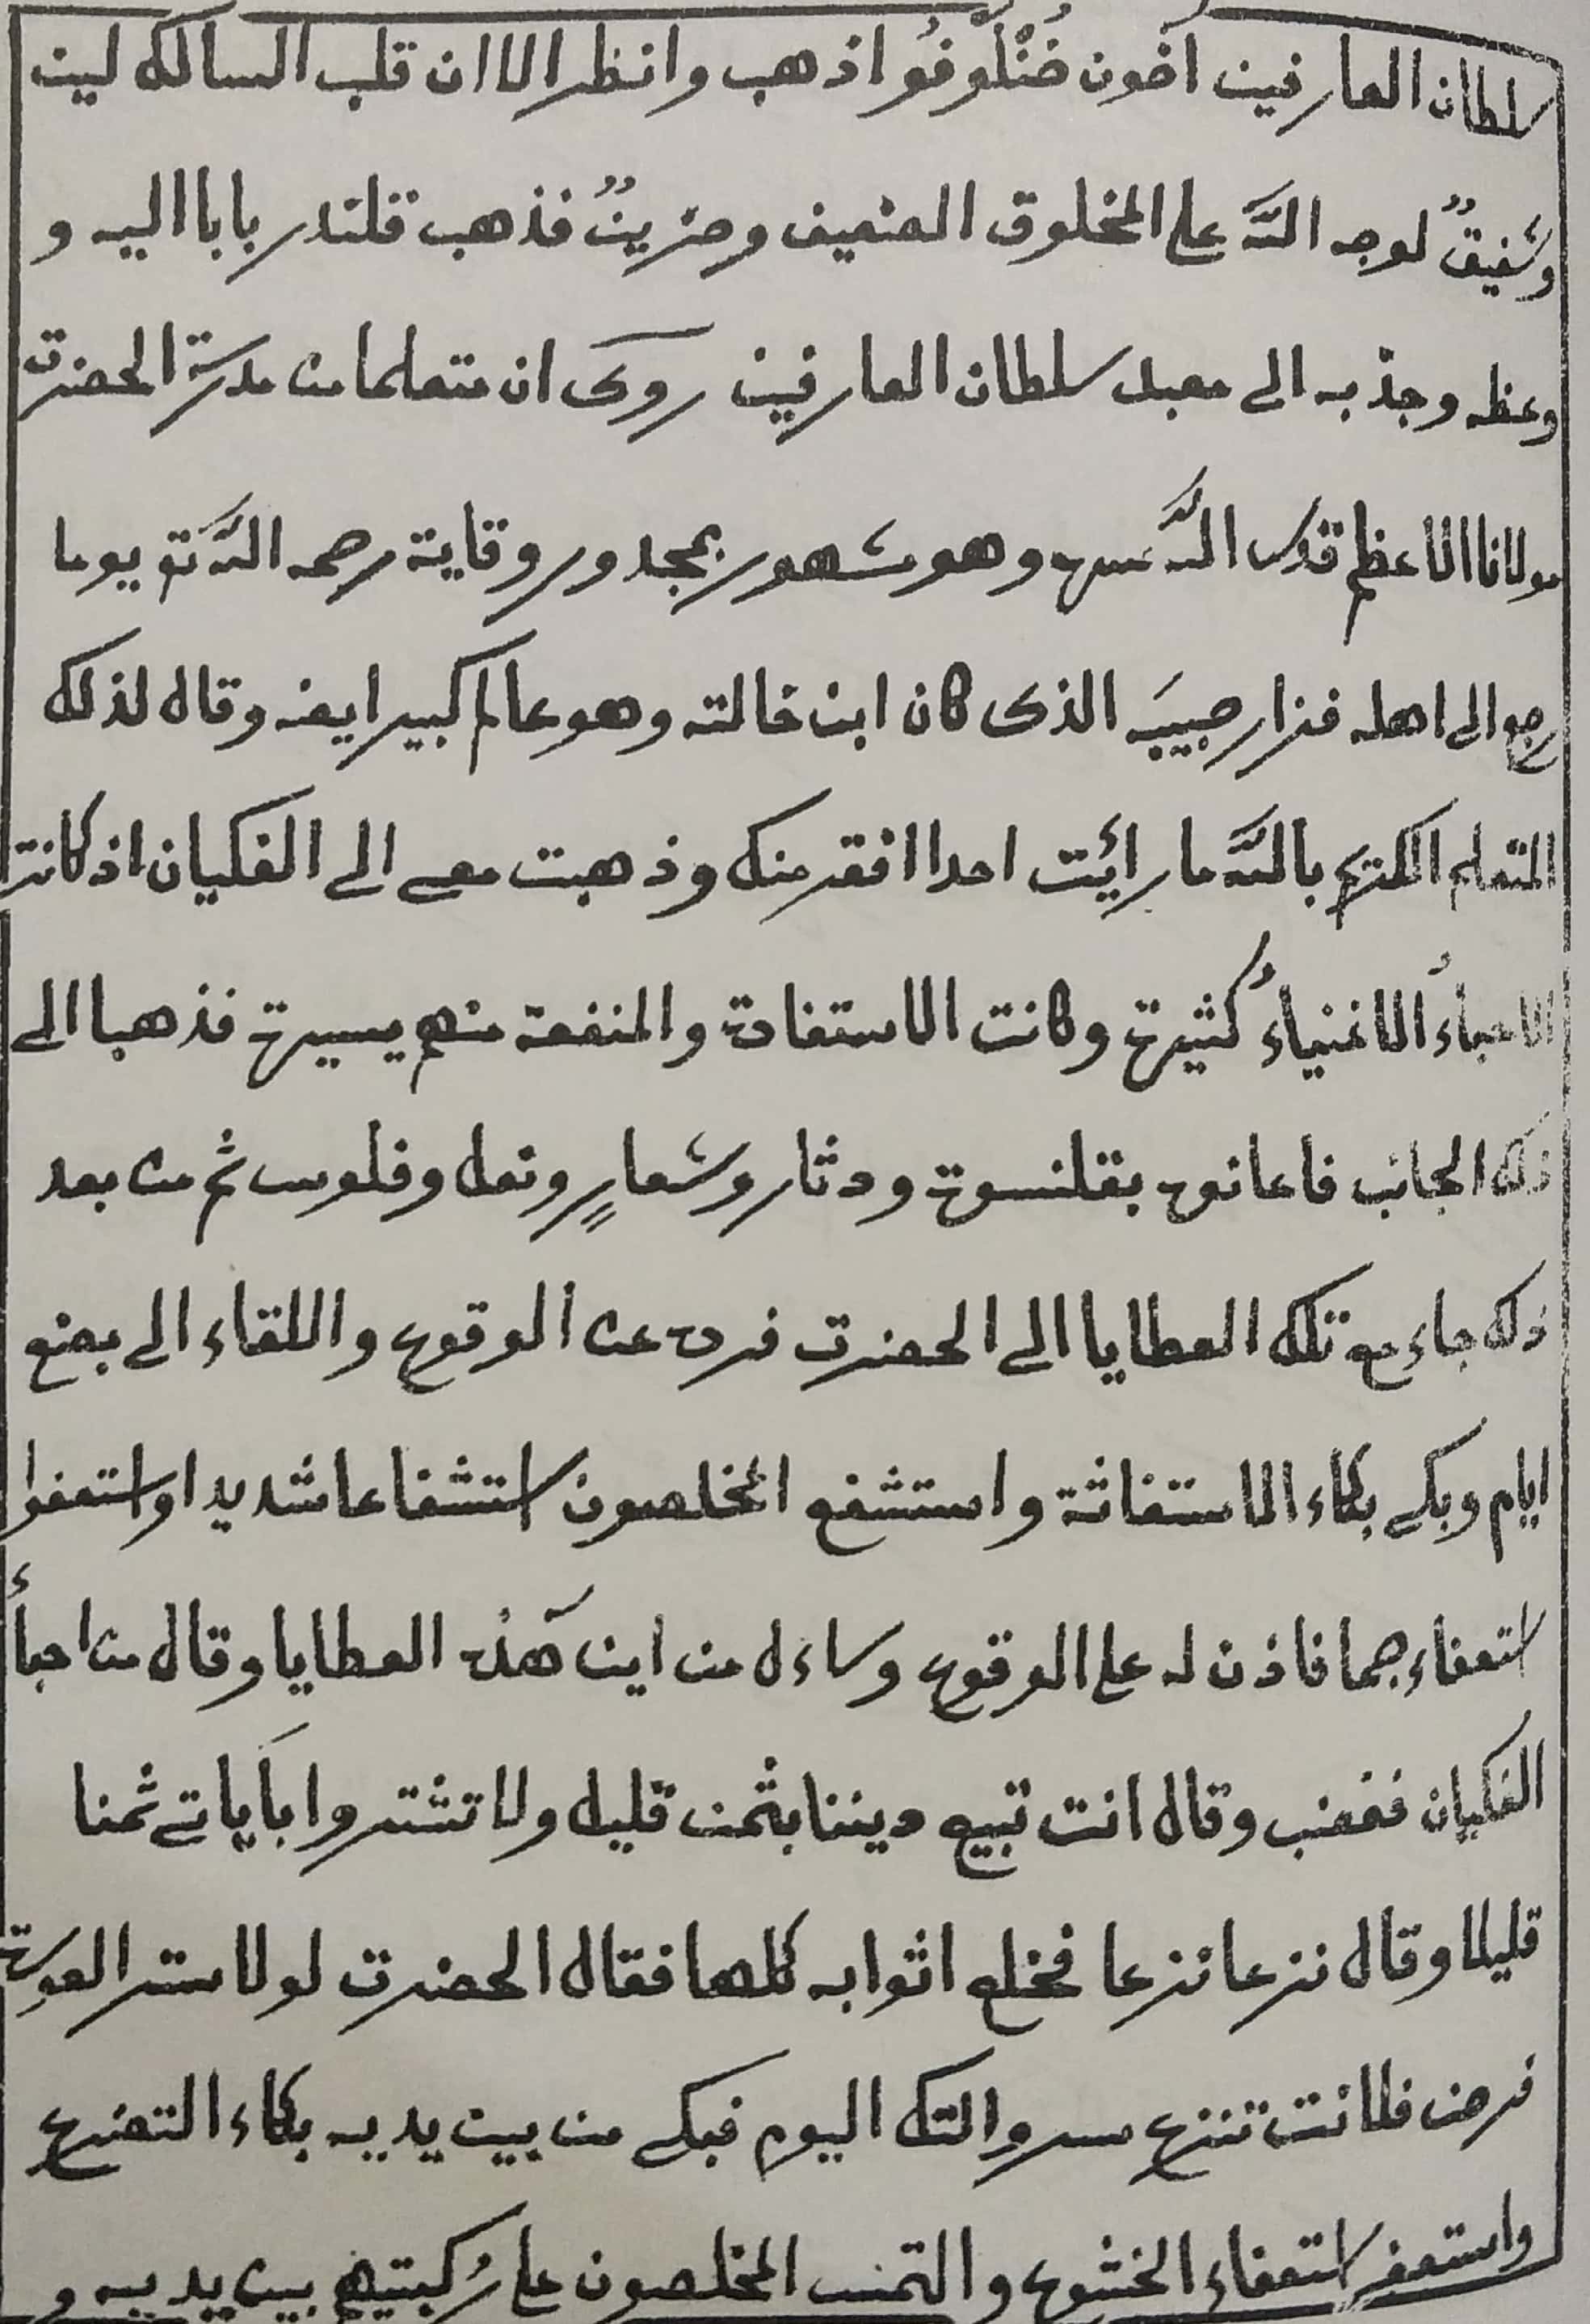 سلطان العارفين اخون خُنْلَوْفُو اذهب وانظر الا ان قلب السالك لين
وشفيقٌ لوجه اللّه على المخلوق الضعيف وحزينٌ فذهب قلندر بابا اليه و
وعظه وجذبه الى معبد سلطان العارفين روى ان متعلما من مدرسة الحضرة
مولانا الاعظم قدس اللّه سره وهو مشهور بمجدور وقاية رحمه اللّه تع يوما
رجع الى اهله فزار حبيبَه الذى كان ابن خالته وهو عالم كبير ايضه وقال لذلك
المتعلم المكتم باللّه ما رائت احدا افقر منك وذهبت معى الى الفكيان اذ كانت
الاحباءُ الاغنياءُ كثيرة وكانت الاستفادة والمنفعة منهم يسيرة فذهبا الى
ذلك الجانب فاعانوه بقلنسوة ودثار وشعارٍ ونعل وفلوس ثم من بعد
ذلك جاء مع تلك العطايا الى الحضرت فرده عن الوقوع واللقاء الى بضع
ايام وبكى بكاء الاستغاثة واستشفع المخلصون استشفاعا شديدا واستعفوا
استعفاء جما فاذن له على الوقوع وساءل من اين هذه العطايا وقال من احباءِ
الفكيان فغضب وقال انت تبيع ديننا بثمن قليل ولا تشتروا باَياتى ثمنا
قليلا وقال نزعا نزعا فخلع اثوابه كلها فقال الحضرت لولا ستر العورة
فرض فلانت تنزع سروالتك اليوم فبكى من بين يديه بكاء التضرع
واستعفى استعفاء الخشوع والتمس المخلصون على رُكبتيهم بين يديه و